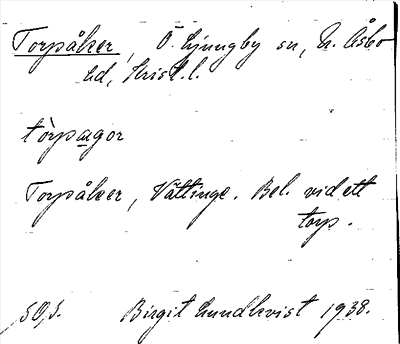 Torpåker, Ö. Ljungby sn, N. Åsbo
hd, Krist. l.
tòrpagor
Torpåker, Vättinge. Bel. vid ett
torp.
50, s. Birgit Lundkvist 1938.